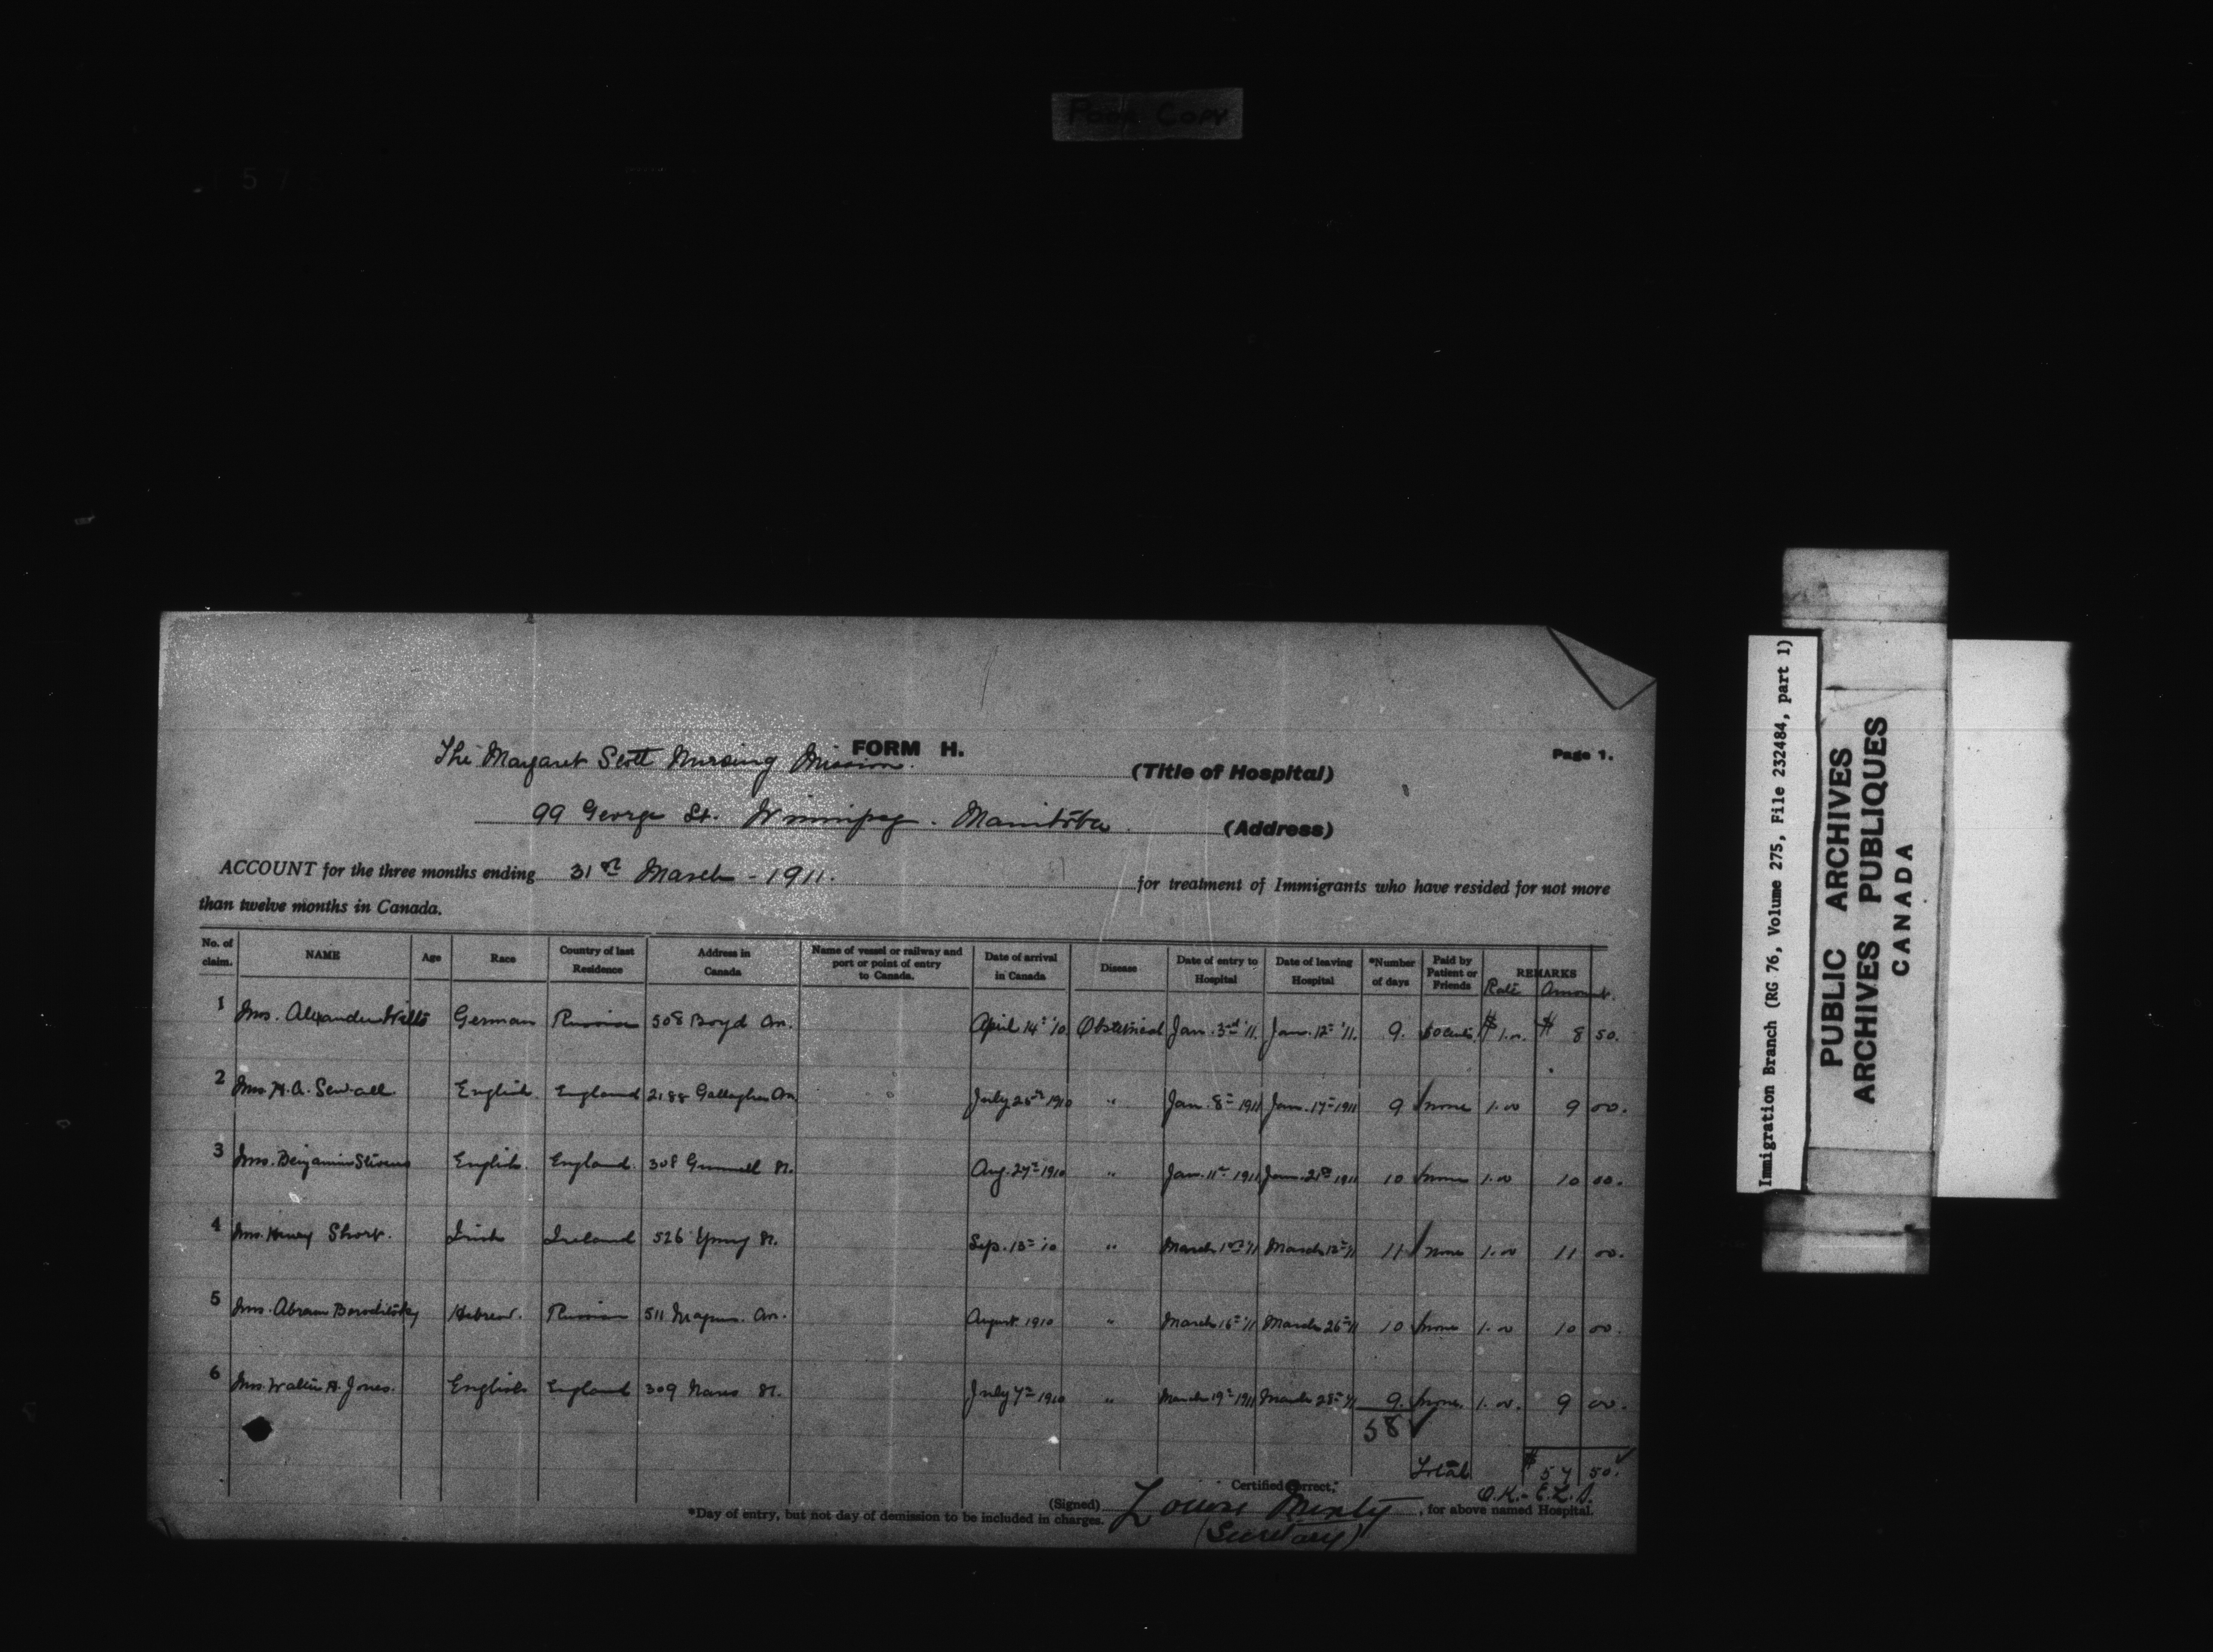 Poor Copy
FORM H.
Page 1.
The Margaret Scott Nursing Mission. (Title of Hospital)
99 George St. Winnipeg. Manitoba. (Address)
ACCOUNT for the three months ending 31st March - 1911. for treatment of Immigrants who have resided for not more
than twelve months in Canada.
No. of claim. NAME Age Race Country of last Residence Address in Canada Name of vessel or railway and port or point of entry to Canada. Date of arrival in Canada Disease Date of entry to Hospital Date of leaving Hospital *Number of days Paid by Patient or Friends REMARKS Rate Amount.
1 Mrs. Alexander German Russia 508 Boyd Av. April 14th '10 Obstetrical Jan. 3rd '11. Jan. 12th '11. 9. 50 cents. $1.00. $ 8 50.
2 Mrs. H. A. Sewall English. England 2188 Gallagher Av. July 1910 " Jan. 8th 1911 Jan. 17th 1911 9 none 1.00 9 00.
3 Mrs. Benjamin English. England. 308 St. Aug. 27th 1910 " Jan. 11th 1911 Jan. 21st 1911 10 none 1.00 10 00.
4 Mrs. Henry Short. Irish Ireland 526 Young St. Sep. 13th '10 " March 1st '11 March 12th '11 11 none 1.00 11 00.
5 Mrs. Abram Boroditsky Hebrew. Russia 511 Magnus Av. August 1910 " March 16th '11 March 26th '11 10 none 1.00 10 00.
6 Mrs. Walter A. Jones. English England 309 Nares St. July 7th 1910 " March 19th 1911 March 28th '11 9. none. 1.00. 9 00.
58
Total $ 57 50.
O.K. - E.L.S.
Certified Correct,
(Signed) Louise Minty, for above named Hospital.
*Day of entry, but not day of demission to be included in charges.
(Secretary)
Immigration Branch (RG 76, Volume 275, File 232484, part 1)
PUBLIC ARCHIVES
ARCHIVES PUBLIQUES
CANADA